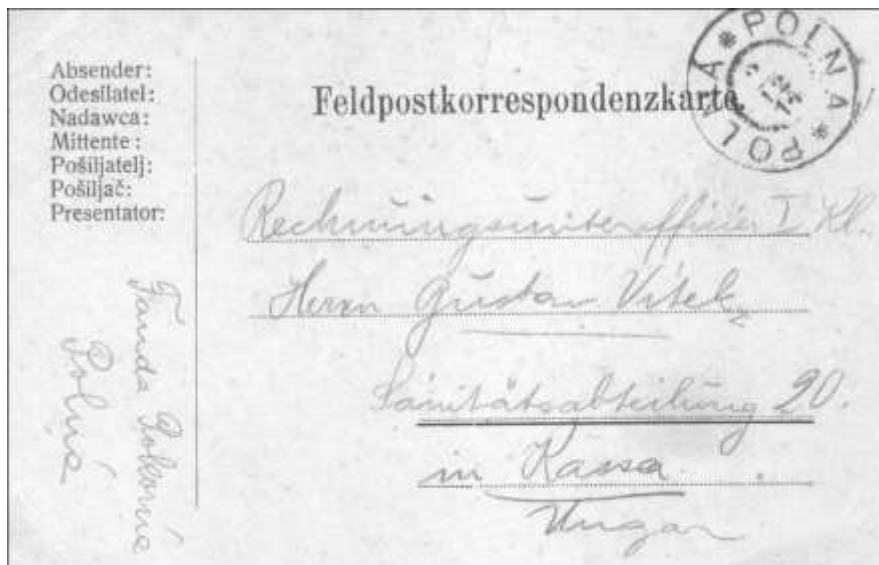 Absender:
Odesílatel:
Nadawca:
Mittente:
Pošiljatelj:
Pošiljač:
Presentator:
Feldpostkorrespondenzkarte.
* POLNA * POLNÁ
Rechnungsunteroffizier I. Kl.
Herrn Gustav Vítek
Sanitätsabteilung 20.
in Kassa.
Ungar
Fanda Pokorná
Polná